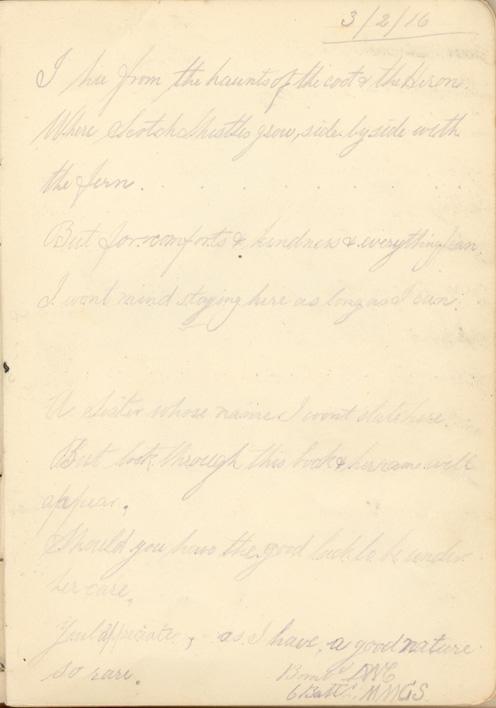 3/2/16
I hie from the haunts of the coot & the Heron.
Where Scotch thistles grow, side by side with
the fern.
But for comforts & kindness & everything
I wont mind staying here as long as I can.
A Sister whose name I wont state here.
But look through this book & her name will
appear.
Should you have the good luck to be under
her care.
Youll appreciate, as I have, a good nature
so rare.
Bombr
6 Batty MMGS.